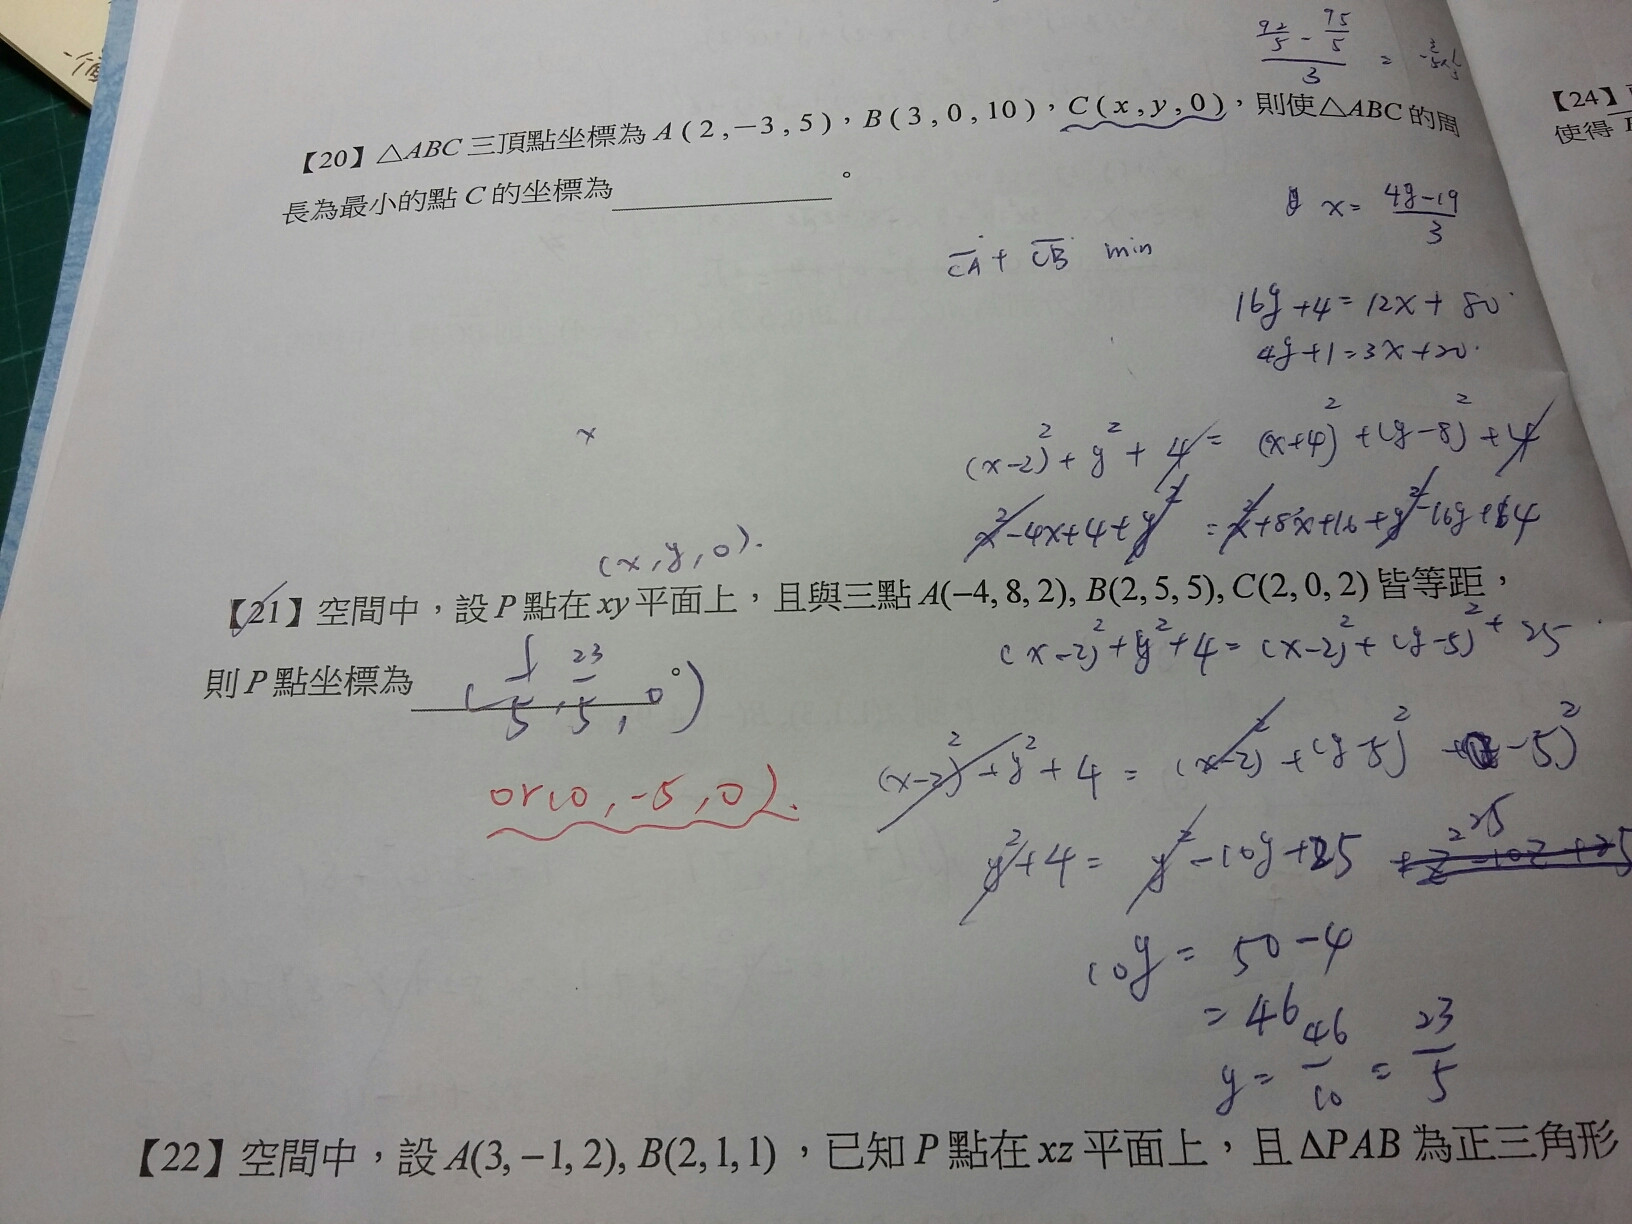 一個
92/5 - 75/5
3
=
【20】△ABC 三頂點坐標為 A ( 2 , −3 , 5 )，B ( 3 , 0 , 10 )，C ( x , y , 0 )，則使△ABC 的周
長為最小的點 C 的坐標為＿＿＿＿＿＿。
【24】
使得
x = (4y-19)/3
CA + CB min
16y+4=12x+80
4y+1=3x+20.
x
(x-2)²+y²+4 = (x+4)²+(y-8)²+4
x²-4x+4+y² = x²+8x+16+y²-16y+64
(x,y,0).
【21】空間中，設 P 點在 xy 平面上，且與三點 A(−4, 8, 2), B(2, 5, 5), C(2, 0, 2) 皆等距，
(x-2)²+y²+4=(x-2)²+(y-5)²+25
則 P 點坐標為 ( /5 , 23/5 , 0 )。
(x-2)²+y²+4 = (x-2)²+(y-5)² -5)²
or(0,-5,0).
y²+4= y²-10y+25 +25
10y = 50-4
= 46
y = 46/10 = 23/5
【22】空間中，設 A(3, −1, 2), B(2, 1, 1) ，已知 P 點在 xz 平面上，且 ΔPAB 為正三角形